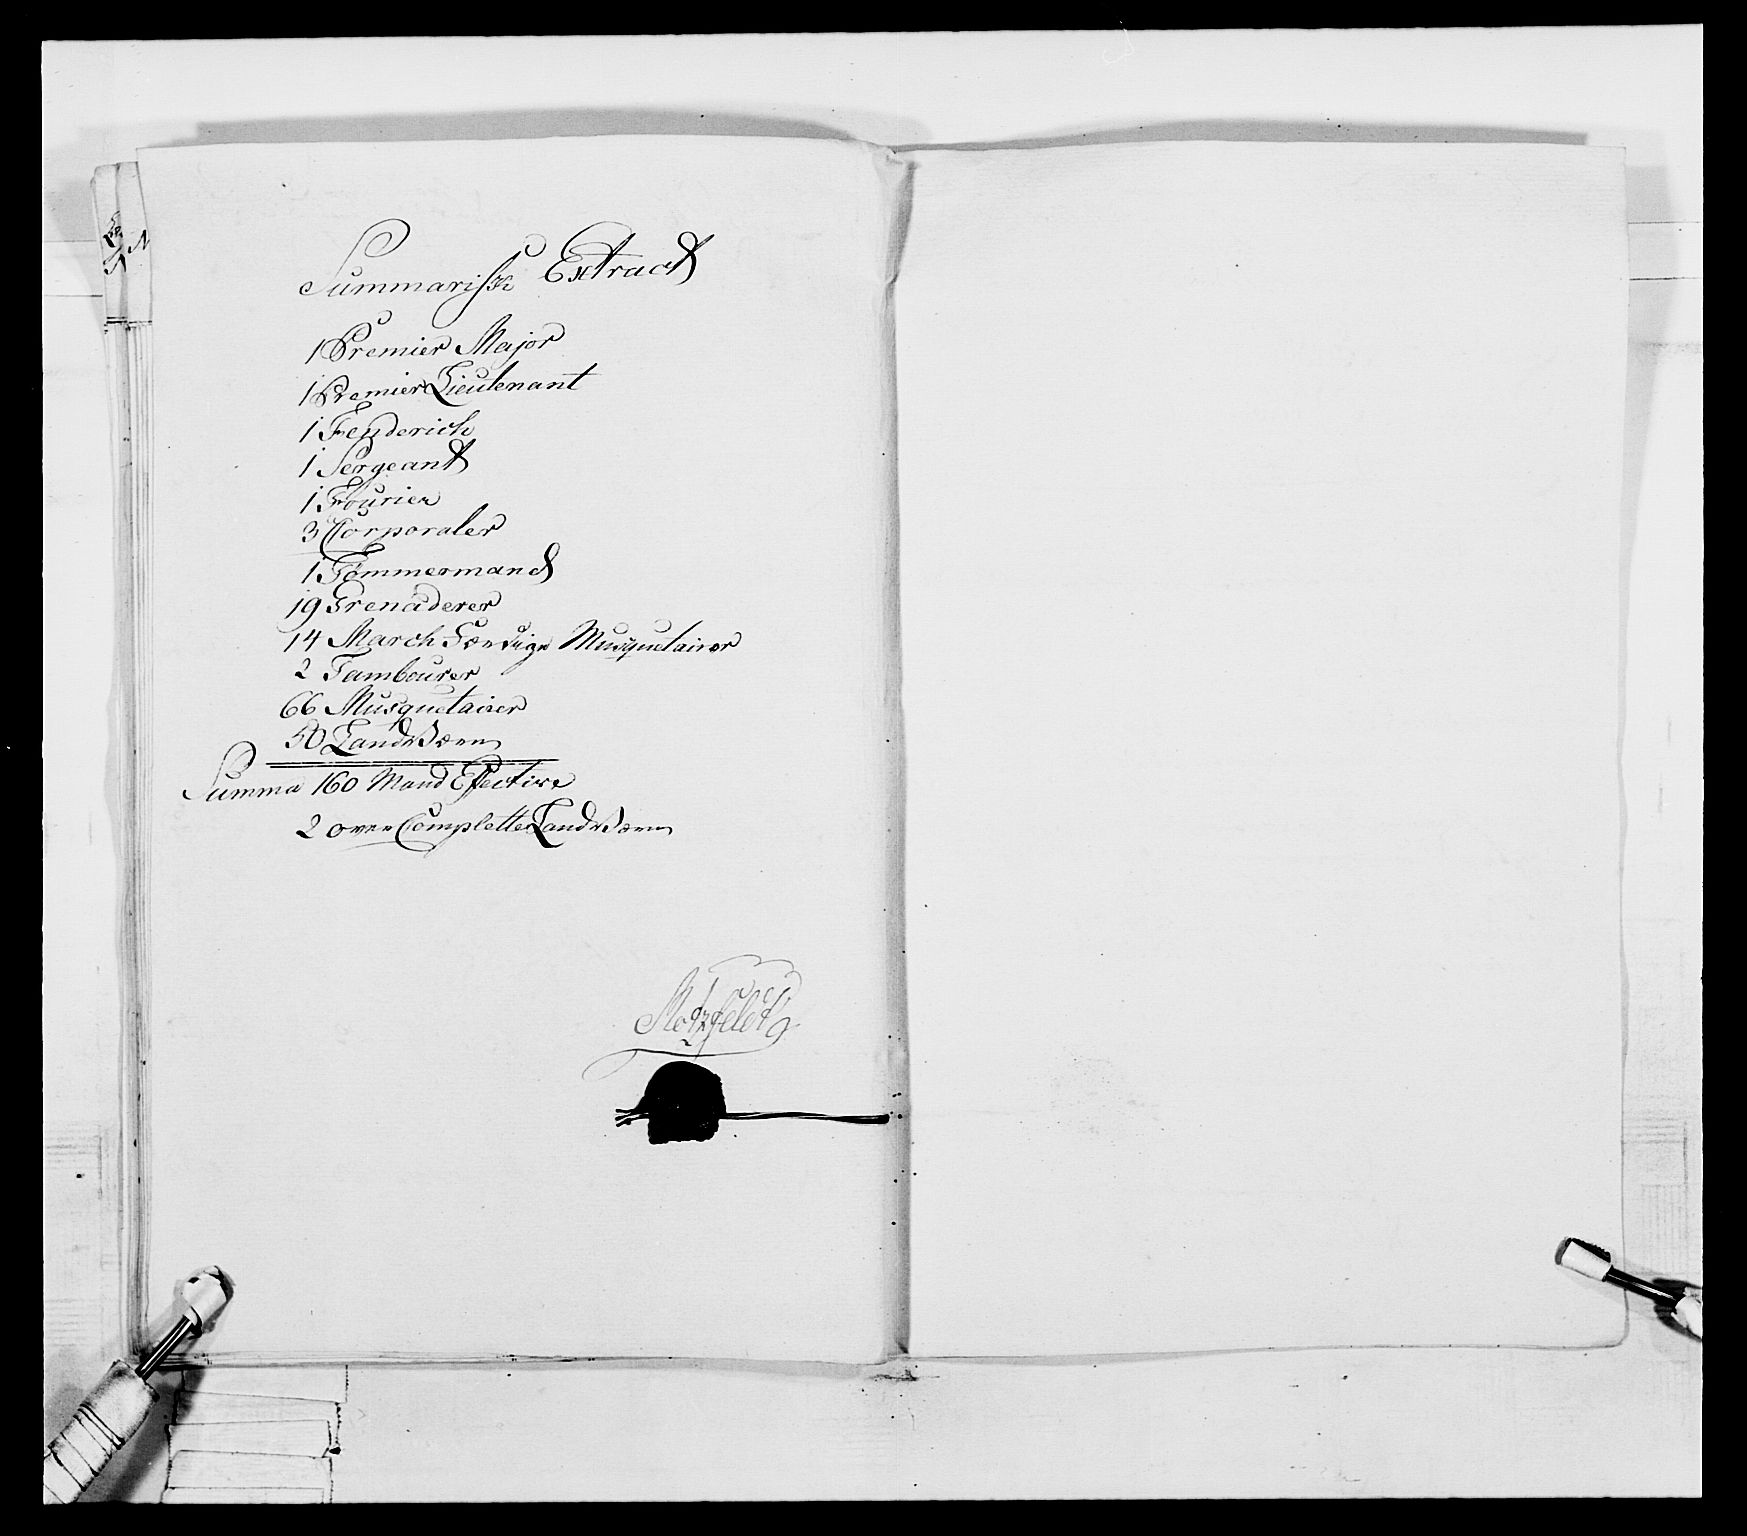 Summarisk Extract
1 Premier Major
1 Premier Lieutenant
1 Fenderich
1 Sergeant
1 Fourier
3 Corporaler
1 Tömmermand
19 Grenaderer
14 March Færdige Musquetairer
2 Tambourer
66 Musquetairer
50 LandVærn
Summa 160 Mand Effective
2 over Complette LandVærn
Motzfeldt